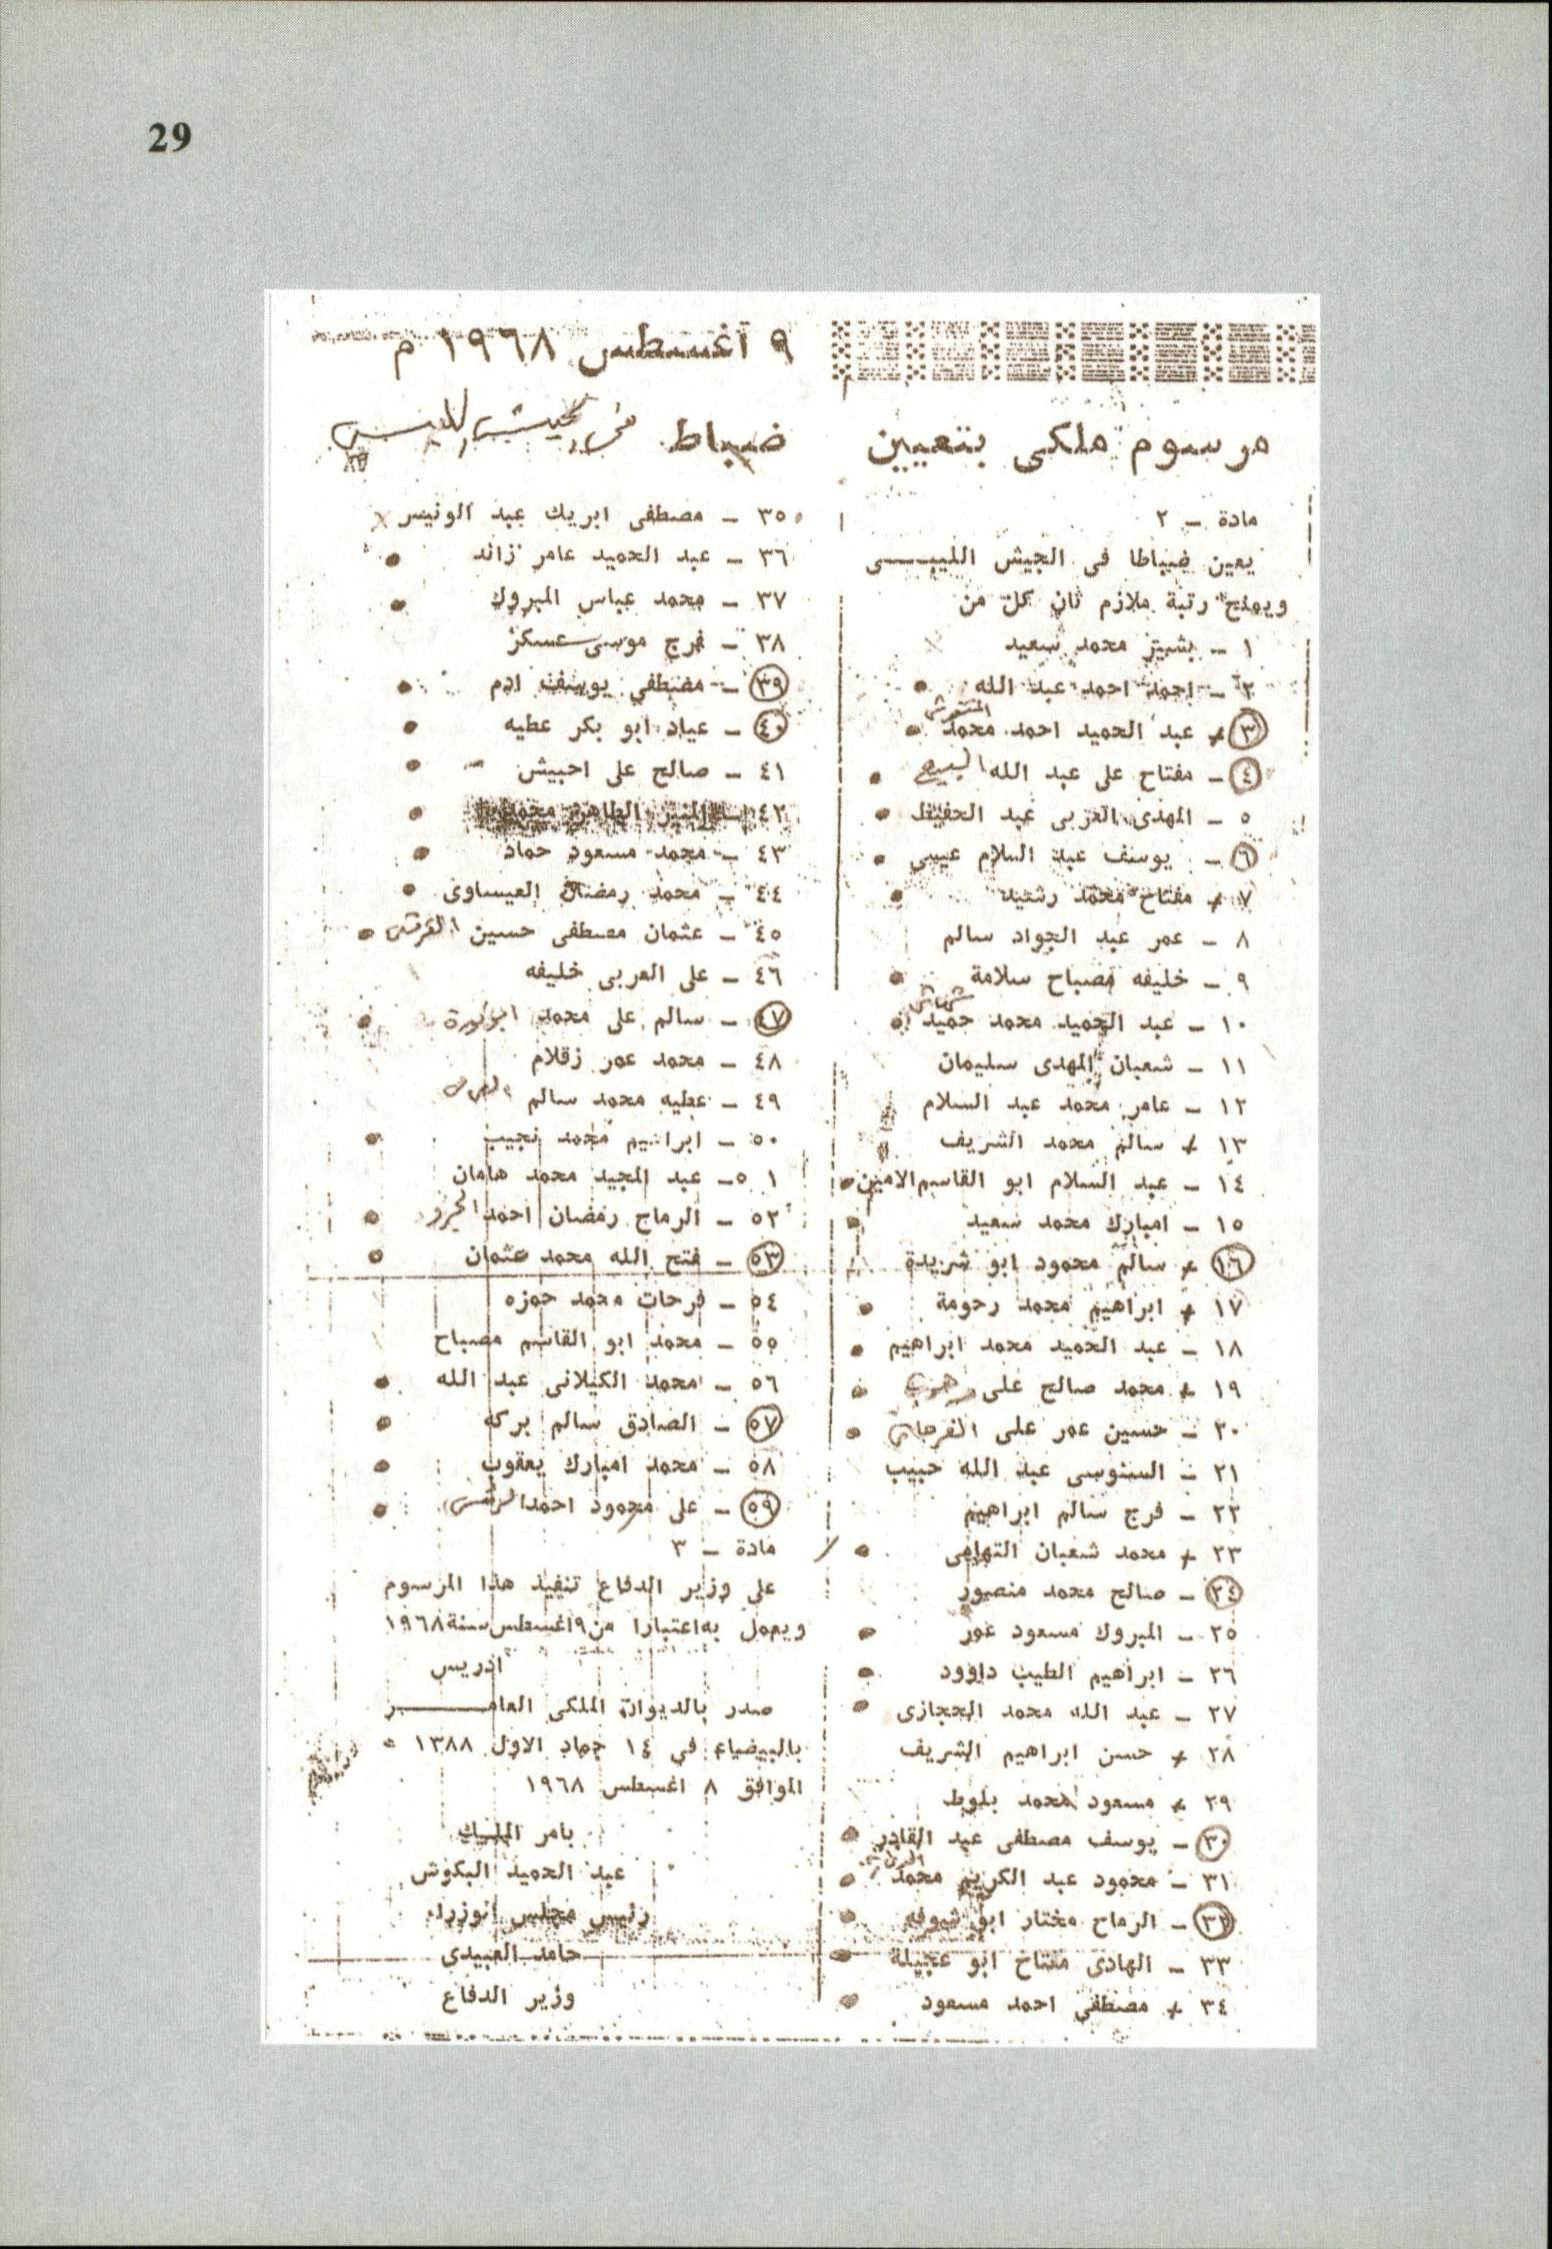 29
٩ اغسطس ١٩٦٨ م
مرسوم ملكى بتعيين ضباط فى الجيش الليبى
مادة ـ ٢
يعين ضباطا فى الجيش الليبـــى
ويمنح رتبة ملازم ثان كل من
١ ـ بشير محمد سعيد
٢ ـ احمد احمد عبد الله
٣ ـ عبد الحميد احمد محمد
٤ ـ مفتاح على عبد الله السبيع
٥ ـ المهدى العربى عبد الحفيظ
٦ ـ يوسف عبد السلام عيسى
٧ ـ مفتاح محمد رشيد
٨ ـ عمر عبد الجواد سالم
٩ ـ خليفه مصباح سلامة
١٠ ـ عبد الحميد محمد حميد
١١ ـ شعبان المهدى سليمان
١٢ ـ عامر محمد عبد السلام
١٣ ـ سالم محمد الشريف
١٤ ـ عبد السلام ابو القاسم الامين
١٥ ـ امبارك محمد سعيد
١٦ ـ سالم محمود ابو شريدة
١٧ ـ ابراهيم محمد رحومة
١٨ ـ عبد الحميد محمد ابراهيم
١٩ ـ محمد صالح على
٢٠ ـ حسين عمر على الفرجانى
٢١ ـ السنوسى عبد الله حبيب
٢٢ ـ فرج سالم ابراهيم
٢٣ ـ محمد شعبان التهامى
٢٤ ـ صالح محمد منصور
٢٥ ـ المبروك مسعود عمر
٢٦ ـ ابراهيم الطيب داوود
٢٧ ـ عبد الله محمد الحجازى
٢٨ ـ حسن ابراهيم الشريف
٢٩ ـ مسعود محمد بلوط
٣٠ ـ يوسف مصطفى عبد القادر
٣١ ـ محمود عبد الكريم محمد
٣٢ ـ الرماح مختار ابو شوفه
٣٣ ـ الهادى مفتاح ابو عجيلة
٣٤ ـ مصطفى احمد مسعود
٣٥ ـ مصطفى ابريك عبد الونيس
٣٦ ـ عبد الحميد عامر زائد
٣٧ ـ محمد عباس المبروك
٣٨ ـ فرج موسى عسكر
٣٩ ـ مصطفى يوسف ادم
٤٠ ـ عياد ابو بكر عطيه
٤١ ـ صالح على احبيش
٤٢ ـ المنير الطاهر محمد
٤٣ ـ محمد مسعود حماد
٤٤ ـ محمد رمضان العيساوى
٤٥ ـ عثمان مصطفى حسين
٤٦ ـ على العربى خليفه
٤٧ ـ سالم على محمد
٤٨ ـ محمد عمر زقلام
٤٩ ـ عطيه محمد سالم
٥٠ ـ ابراهيم محمد نجيب
٥١ ـ عبد المجيد محمد هامان
٥٢ ـ الرماح رمضان احمد
٥٣ ـ فتح الله محمد عثمان
٥٤ ـ فرحات محمد حمزه
٥٥ ـ محمد ابو القاسم مصباح
٥٦ ـ محمد الكيلانى عبد الله
٥٧ ـ الصادق سالم بركه
٥٨ ـ محمد امبارك يعقوب
٥٩ ـ على محمود احمد
مادة ـ ٣
على وزير الدفاع تنفيذ هذا المرسوم
ويعمل به اعتبارا من ٩ اغسطس سنة ١٩٦٨
ادريس
صدر بالديوان الملكى العامـــر
بالبيضاء فى ١٤ جماد الاول ١٣٨٨
الموافق ٨ اغسطس ١٩٦٨
بامر الملك
عبد الحميد البكوش
رئيس مجلس الوزراء
حامد العبيدى
وزير الدفاع